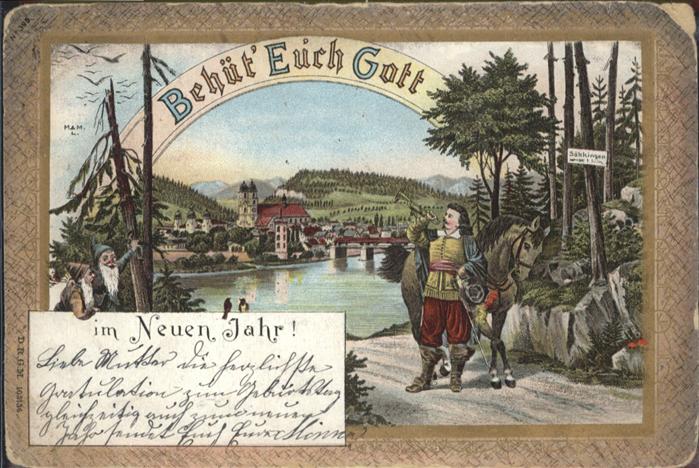 Behüt' Euch Gott
M&M.
L.
Säkkingen
im Neuen Jahr!
Liebe Mutter die herzlichste
Gratulation zum Geburtstag
gleichzeitig auch zum neuen
Jahr sendet Euch Euer
D.R.G.M.